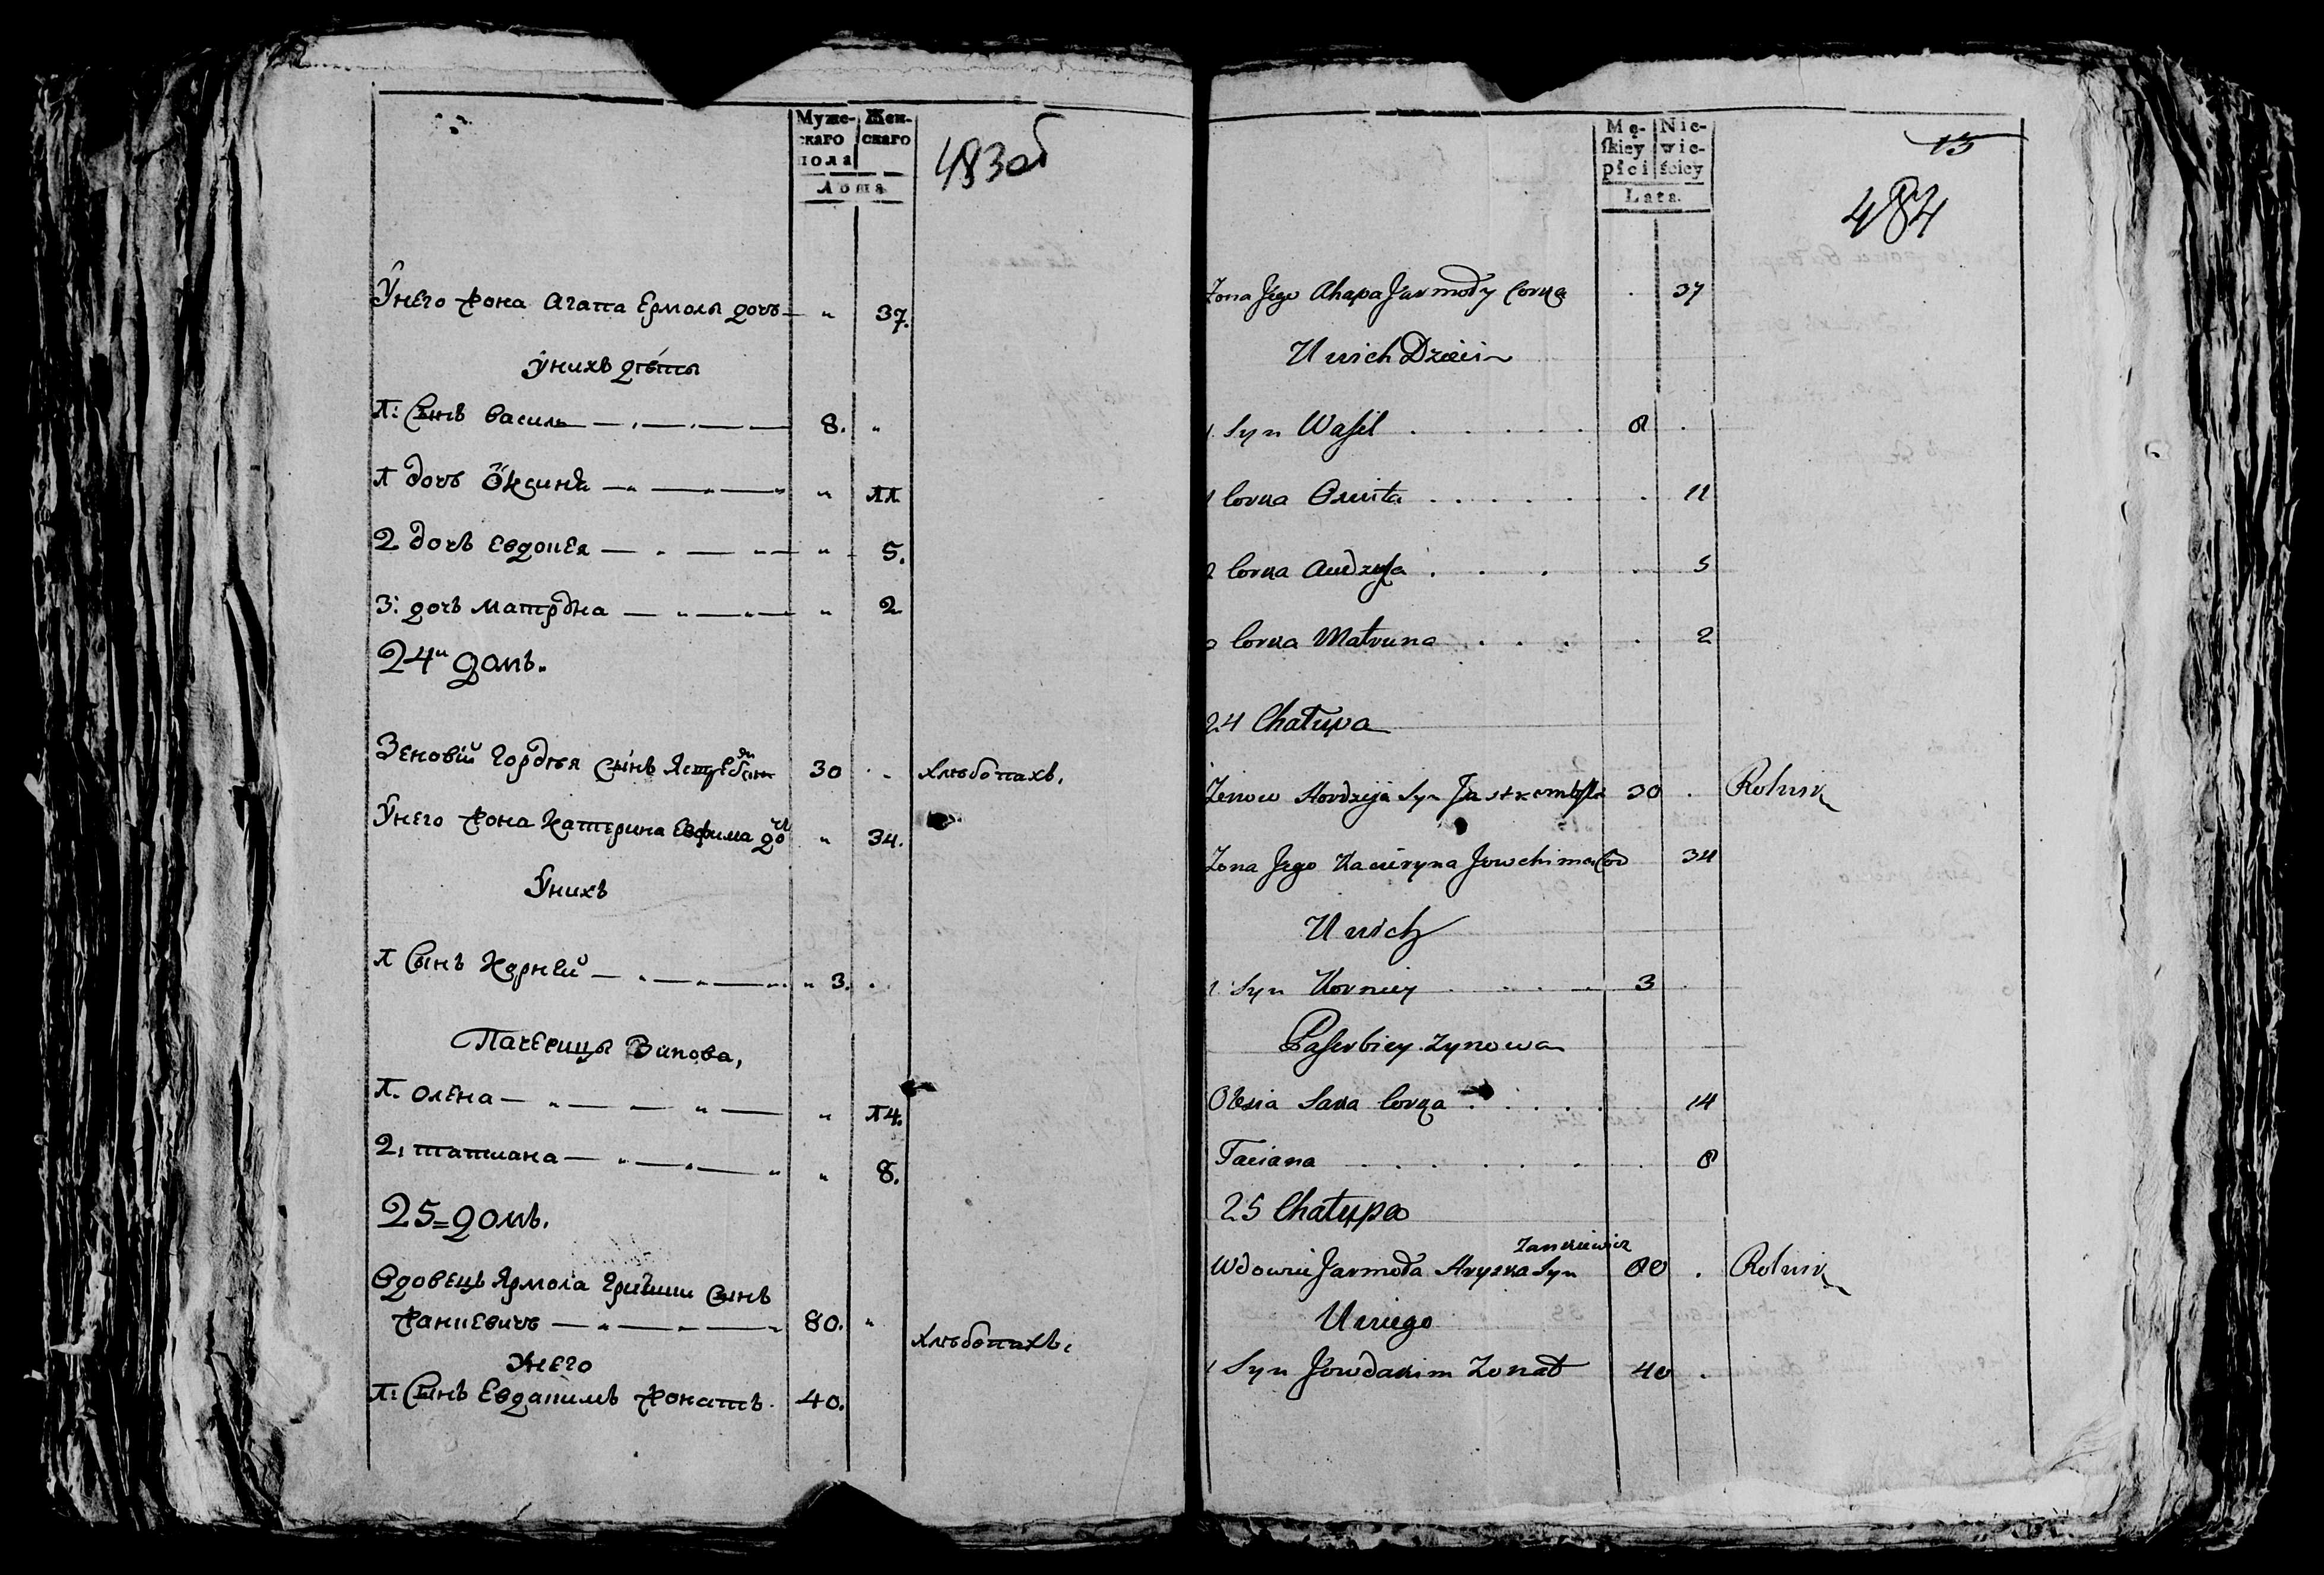 Муже-
скаго
пола
Жен-
скаго
Лѣта
483об
Унего жона Агапа Ермолы дочъ — " 37.
унихъ дѣты
1: Сынъ Василь — 8. "
1 дочъ Оксинія — " 11
2 дочъ Евдокея — " 5.
3: дочъ Матрона — " 2
24й домъ.
Зеновій Гордѣя сынъ 30 . . хлѣбопахъ.
Унего жона Катерина Евфима до " 34.
Унихъ
1 Сынъ Корнѣй — " 3. .
Пачерицы Зинова,
1. олена — " 14.
2, татиана — " 8.
25=домъ.
Вдовецъ Ярмола Грицки сынъ
Жанкевичъ — 80. "
хлѣбопахъ.
Унего
1: Сынъ Евдакимъ Жонатъ. 40.
Mę-
skiey
płci
Nie-
wie-
ściey
Lata.
15
484
Zona Jego Ahapa Jarmoły Corka . 37
U nich Dzieci
1 Syn Wasil . . . . . 8 .
1 Corka Oxinia . . . . . 11
2 Corka . . . . 5
3 Corka Matruna . . . . 2
24 Chałupa
Zenow Hordzieja Syn 30 . Rolnik
Zona Jego Kacieryna Jowchima Cor 34
U nich
1 Syn Korniey . . . . 3 .
Paserbicy Zynowa
Olena Corka . . . . . 14
Taciana . . . . . . 8
25 Chałupa
Zankiewicz
Wdowiec Jarmoła Hryszka Syn 80 . Rolnik
U niego
1 Syn Jowdakim Zonat 40 .